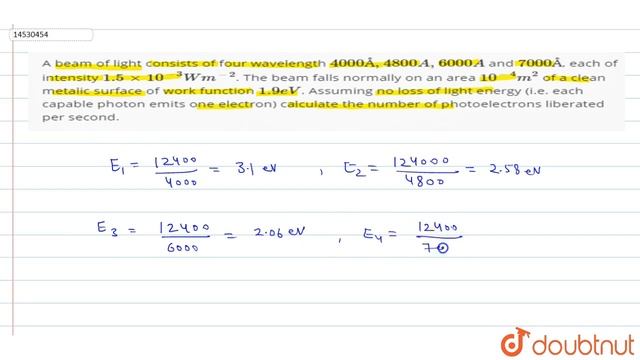 14530454
A beam of light consists of four wavelength 4000Å, 4800A, 6000A and 7000Å, each of
intensity 1.5 × 10⁻³Wm⁻². The beam falls normally on an area 10⁻⁴m² of a clean
metalic surface of work function 1.9eV. Assuming no loss of light energy (i.e. each
capable photon emits one electron) calculate the number of photoelectrons liberated
per second.
E₁ = 12400/4000 = 3.1 eV , E₂ = 124000/4800 = 2.58 eV
E₃ = 12400/6000 = 2.06 eV , E₄ = 12400/70
doubtnut